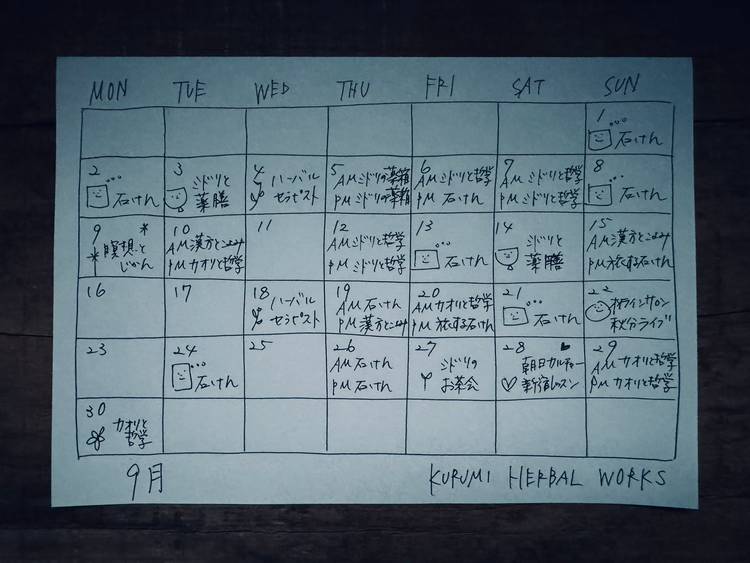 MON TUE WED THU FRI SAT SUN
1
石けん
2
石けん
3
ミドリと
薬膳
4
ハーバル
セラピスト
5
AM ミドリの薬箱
PM ミドリの薬箱
6
AM ミドリと哲学
PM 石けん
7
AM ミドリと哲学
PM ミドリと哲学
8
石けん
9
瞑想と
じかん
10
AM 漢方とこよみ
PM カオリと哲学
11
12
AM ミドリと哲学
PM ミドリと哲学
13
石けん
14
ミドリと
薬膳
15
AM 漢方とこよみ
PM 旅する石けん
16
17
18
ハーバル
セラピスト
19
AM 石けん
PM 漢方とこよみ
20
AM カオリと哲学
PM 旅する石けん
21
石けん
22
オンラインサロン
秋分ライブ
23
24
石けん
25
26
AM 石けん
PM 石けん
27
ミドリの
お茶会
28
朝日カルチャー
新宿レッスン
29
AM カオリと哲学
PM カオリと哲学
30
カオリと
哲学
9月
KURUMI HERBAL WORKS